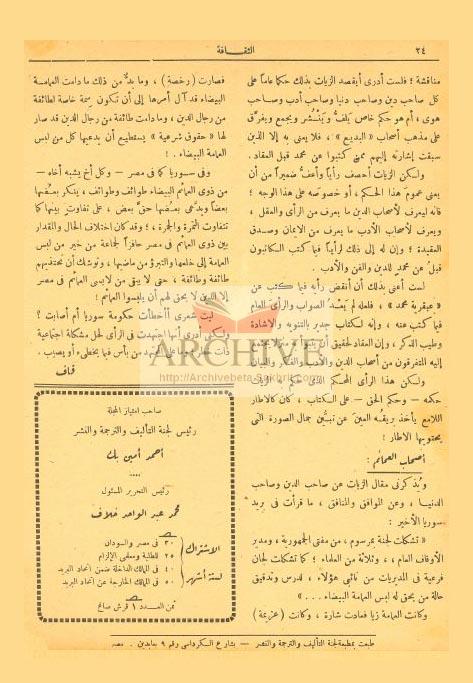 ٢٤
الثقافة
مناقشة ؛ فلست أدرى أيقصد الزيات بذلك حكما عاما على
كل صاحب دين وصاحب دنيا وصاحب أدب وصاحب
هوى ، أم هو حكم خاص يلف وينشر ويجمع ويفرق
على مذهب أصحاب « البديع » ، فلا يعنى به إلا الذين
سبقت إشارته إليهم ممن كتبوا عن محمد قبل العقاد .
ولكن الزيات أحصف رأياً وأعف ضميراً من أن
يعنى عموم هذا الحكم ، أو خصوصه على هذا الوجه ؛
فانه ليعرف لأصحاب الدين ما يعرف من الرأى والعقل ،
ويعرف لأصحاب الأدب ما يعرف من الايمان وصدق
العقيدة ؛ وإن له إلى ذلك لرأياً فيما كتب الكاتبون
قبل عن محمد للدين والفن والأدب .
لست أعنى بذلك أن أنقض رأيه فيما كتب عن
« عبقرية محمد » ، فلعله لم يعد الصواب والرأى العام
فيما كتب عنه ، وإنه لكتاب جدير بالتنويه والاشادة
وطيب الذكر ، وإن العقاد لحقيق أن
إليه المتفرقون من أصحاب الدين والأدب والفكر والبيان
ولكن هذا الرأى المحكم الذى حكم به الزيات
حكمه — وحكم الحق — على الكتاب ، كان كالاطار
اللامع يأخذ بريقه العين عن تبين جمال الصورة التى
يحتويها الاطار !
أصحاب العمائم :
وذكرنى مقال الزيات عن صاحب الدين وصاحب
الدنيا ، وعن الموافق والمنافق ، ما قرأت فى بريد
سوريا الأخير :
« تشكلت لجنة بمرسوم ، من مفتى الجمهورية ، ومدير
الأوقاف العام ، وثلاثة من العلماء ؛ كما تشكلت لجان
فرعية فى المديريات من نائبى هؤلاء ، لدرس وتدقيق
حالة من يحق له لبس العمامة البيضاء ... »
وكانت العمامة زيا فعادت شارة ، وكانت ( عزيمة )
فصارت ( رخصة ) ، وما بدٌّ من ذلك ما دامت العمامة
البيضاء قد آل أمرها إلى أن تكون سمة خاصة لطائفة
من رجال الدين ، وما دامت طائفة من رجال الدين قد صار
لها « حقوق شرعية » يستطيع أن يدعيها كل من لبس
العمامة البيضاء . !
وفى سوريا كما فى مصر — وكل أخ يشبه أخاه —
من ذوى العمائم البيضاء طوائف وطوائف ، ينكر بعضها
بعضاً ويدعى بعضها حق بعض ، على تفاوت بينها كما
تتفاوت التمرة والجمرة ؛ وقد كان اختلاف الحال والمقدار
بين ذوى العمائم فى مصر حافزاً لجماعة من خير من لبس
العمامة إلى خلعها والتبرؤ من ماضيها ، وتوشك أن تحتذيهم
طائفة وطائفة ، حتى لا يبقى من لابسى العمائم فى مصر
إلا الذين لا يحق لهم أن يلبسوا العمائم !
ليت شعرى أأخطأت حكومة سوريا أم أصابت ؟
ولكنى أدرى أنها اجتهدت فى الرأى لحل مشكلة اجتماعية
ذات وما على المجتهد من بأس فيما يخطئ أو يصيب .
قاف
صاحب امتياز المجلة
رئيس لجنة التأليف والترجمة والنشر
أحمد أمين بك
....
رئيس التحرير المسئول
محمد عبد الواحد خلاف
الاشتراك
لستة أشهر
٣٠ فى مصر والسودان
٢٥ للطلبة ومعلمى الإلزام
٤٠ فى الممالك الداخلة ضمن اتحاد البريد
٥٠ فى الممالك الخارجة عن اتحاد البريد
ثمن العدد ١ قرش صاغ
طبعت بمطبعة لجنة التأليف والترجمة والنشر — بشارع الكرداسى رقم ٩ بعابدين . مصر
ARCHIVE
http://Archivebeta.Sakhrit.com